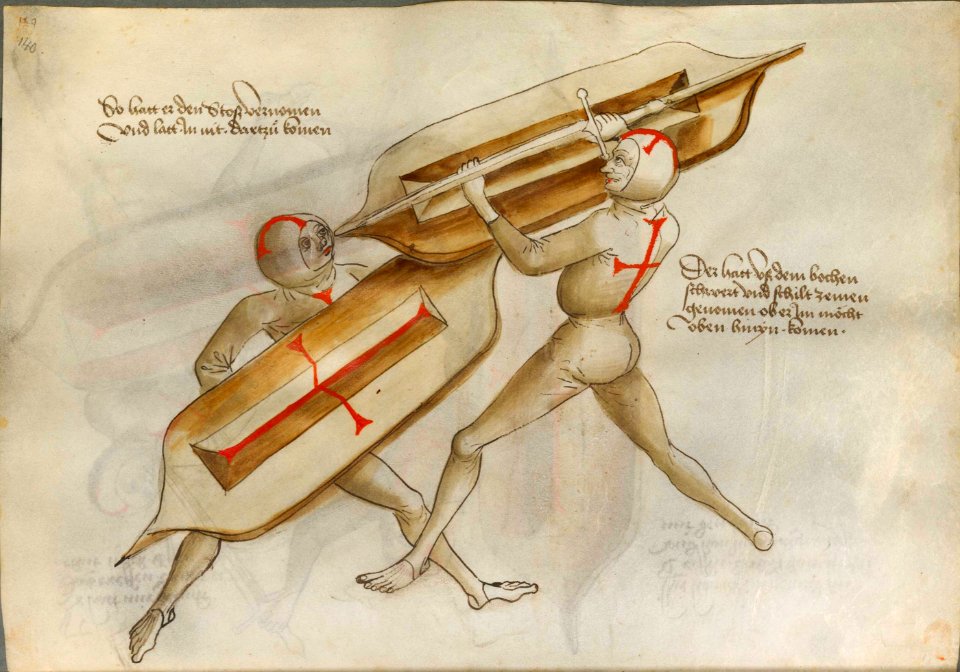 140.
So hatt er den Stosz vernomen
Vnd latt In nit dartzů komen
Der hatt vsz dem hochen
schwert vnd schilt zemen
genomen ob er Im möcht
oben hinyn komen.